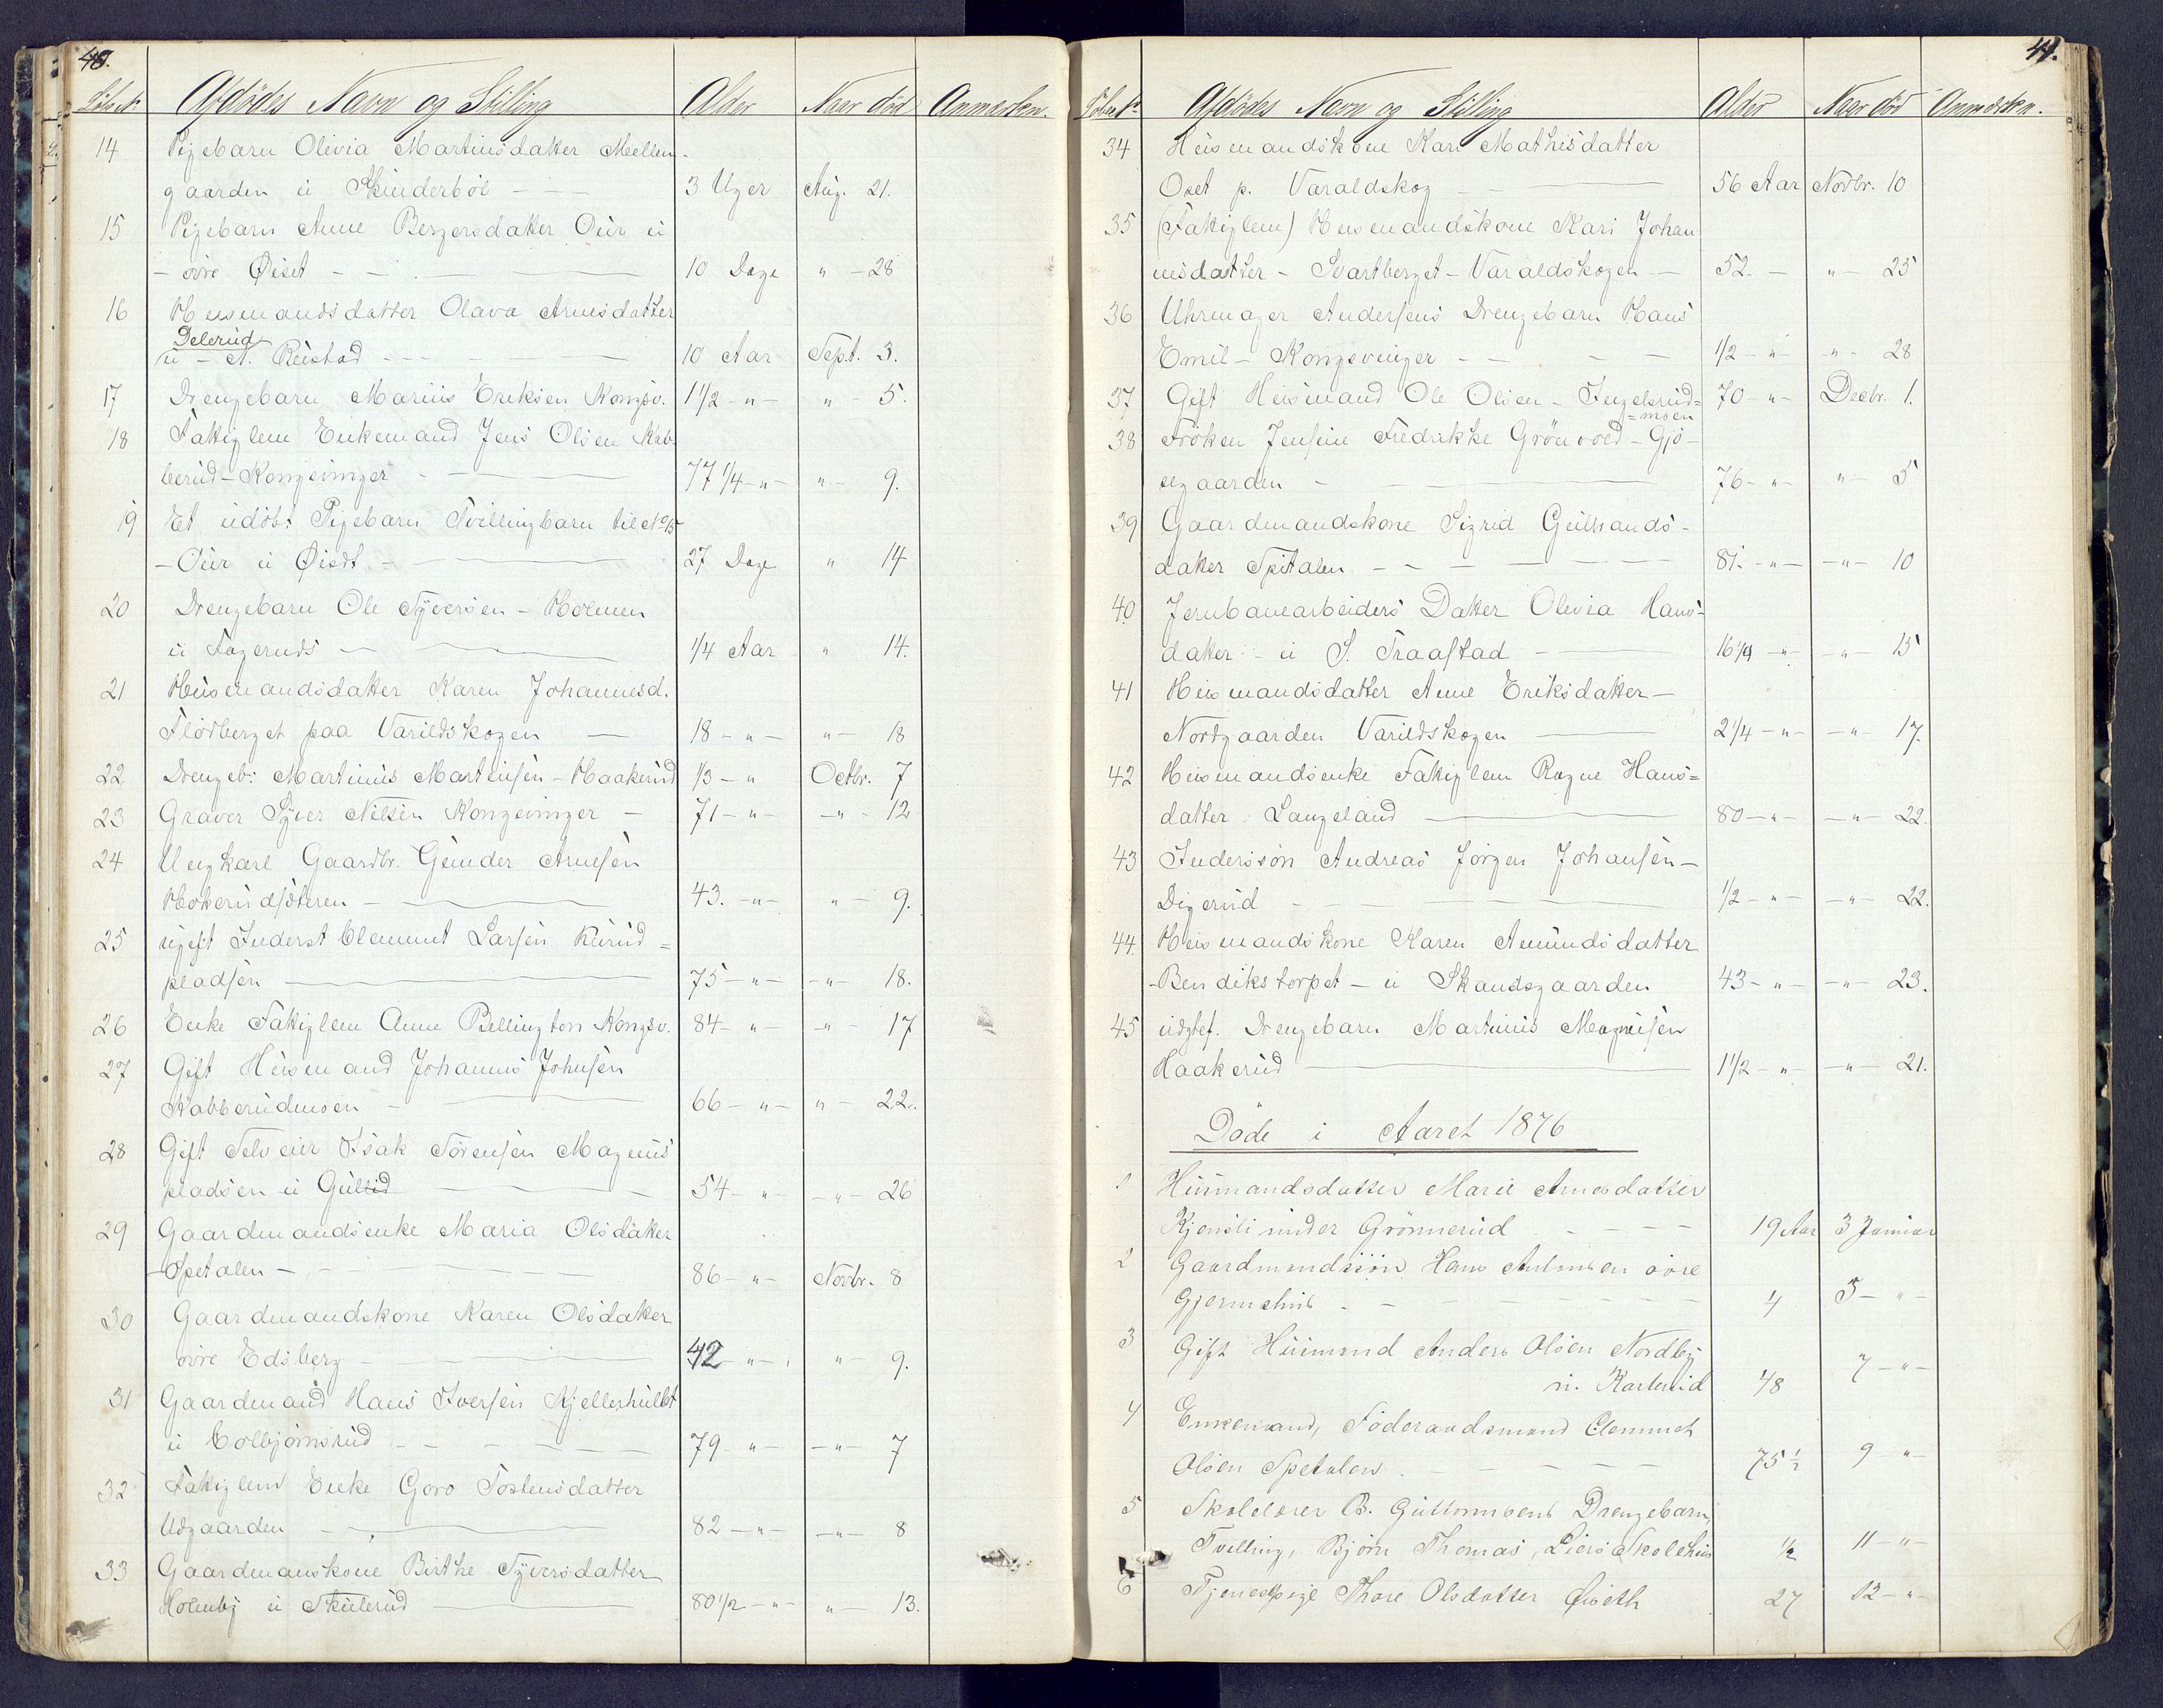 40.
Löbe No Afdödes Navn og Stilling Alder Naar död Anmærkn.
14 Pigebarn Olivia Martinsdatter Mellem-
gaarden u Skinderböl - - - 3 Uger Aug. 21.
15 Pigebarn Anne Bergersdatter Oür u
- övre Öiset - - 10 Dage " - 28
16 Husmandsdatter Olava Arnesdatter
Delerud
u - N. Rustad - - - 10 Aar Sept. 3.
17 Drengebarn Marius Eriksen Kongsv. 1 1/2 - " - " - 5.
18 Fattiglem Enkemand Jens Olsen Rab-
berud - Kongsvinger - 77 1/4 - " - " - 9.
19 Et udöbt Pigebarn Tvillingbarn til No 15
- Oür u Öisdt - 27 Dage " 14
20 Drengebarn Ole Syversen - Holmen
u Fagernds - 1/4 Aar " 14.
21 Husmandsdatter Karen Johannesd.
Flödberget paa Varildskogen - 18 - " - " - 18
22 Drengeb: Martinus Martinsen - Haakerud 1/3 - " Octbr. 7
23 Graver Syver Nilsen Kongsvinger - 71 - " - - " - 12
24 Ungkarl Gaardbr. Gunder Arnesen
Hokerudsæteren - 43. - " - " - 9.
25 ugift Inderst Clemmet Larsen Rurud =
pladsen - 75 - " - - " - 18.
26 Enke Fattiglem Anne Billington Kongsv. 84 - " - - " - 17
27 Gift Husmand Johannis Johnsen
Rabberudmoen - 66 - " - " - 22.
28 Gift Selveier Isak Sörensen Magnus
pladsen u Gullid - 54 - " - - " - 26
29 Gaardmandsenke Maria Olsdatter
- Spetalen - 86 - " - Novbr. 8
30 Gaardmandskone Karen Olsdatter
övre Edsberg - 42 - " - " - 9.
31 Gaardmand Hans Iversen Kjellerhullet
u Colbjörnsrud - 79 - " - - " - 7
32 Fattiglem Enke Goro Tostensdatter
Udgaarden - 82 - " - - " - 8
33 Gaardmanskone Birthe Syversdatter
Holmby u Skulerud - 80 1/2 - " - " - 13.
41.
Löbe No Afdödes Navn og Stilling Alder Naar död Anmærkn.
34 Husmandskone Kari Mathisdatter
Oset p. Varaldskog - 56 Aar Novbr. 10
35 (Fattiglem) Husmandskone Kari Johan
nisdatter - Svartberget - Varaldskogen - 52. - " - 25
36 Uhrmager Andersens Drengebarn Hans
Emil - Kongsvinger - - 1/2 - " - - " - 28
37 Gift Husmand Ole Olsen - Ingelsrud= 70 - " - Decbr. 1.
=moen
38 Fröken Jensine Fredrikke Grönvold - Gjö-
segaarden - 76 - " - " - 5
39 Gaardmandskone Sigrid Gulbrands-
datter Spitalen - 81. - " - - " - 10
40 Jernbanearbeiders Datter Olivia Hans-
datter - u S. Traastad - 16 1/4 - " - - " - 15
41 Husmandsdatter Anne Eriksdatter -
Nordgaarden Varildskogen - 2 1/4 - " - - " - 17.
42 Husmandsenke Fattiglem Ragne Hans=
datter Langeland - 80 - " - - " - 22.
43 Inderssön Andreas Jörgen Johansen -
Digerud - 1/2 - " - - " - 22.
44. Husmandskone Karen Amundsdatter
- Bendikstorpet - u Skandsgaarden 43 - " - - " - 23.
45 udgtef. Drengebarn Martinus Magnusen
Haakerud - 1 1/2 - " - - " - 21.
Döde i Aaret 1876
1 Husmandsdatter Marie Arnesdatter
Kjensli under Grönnerud - 19 Aar 3 Januar
2 Gaardmandssön Hans Antonsen övre
Gjermshus - 4 5 - " -
3 Gift Husmand Anders Olsen Nordby
u. Karterud 48 7 - " -
4 Enkemand, Föderaadsmand Clemmet
Olsen Spetalen - 75 1/2 9 - " -
5 Skolelærer B. Guttormsens Drengebarn,
Tvilling, Björn Thomas, Liers Skolehus 1/2 11 - " -
6 Tjenestepige Thore Olsdatter Öiseth 27 12 - " -